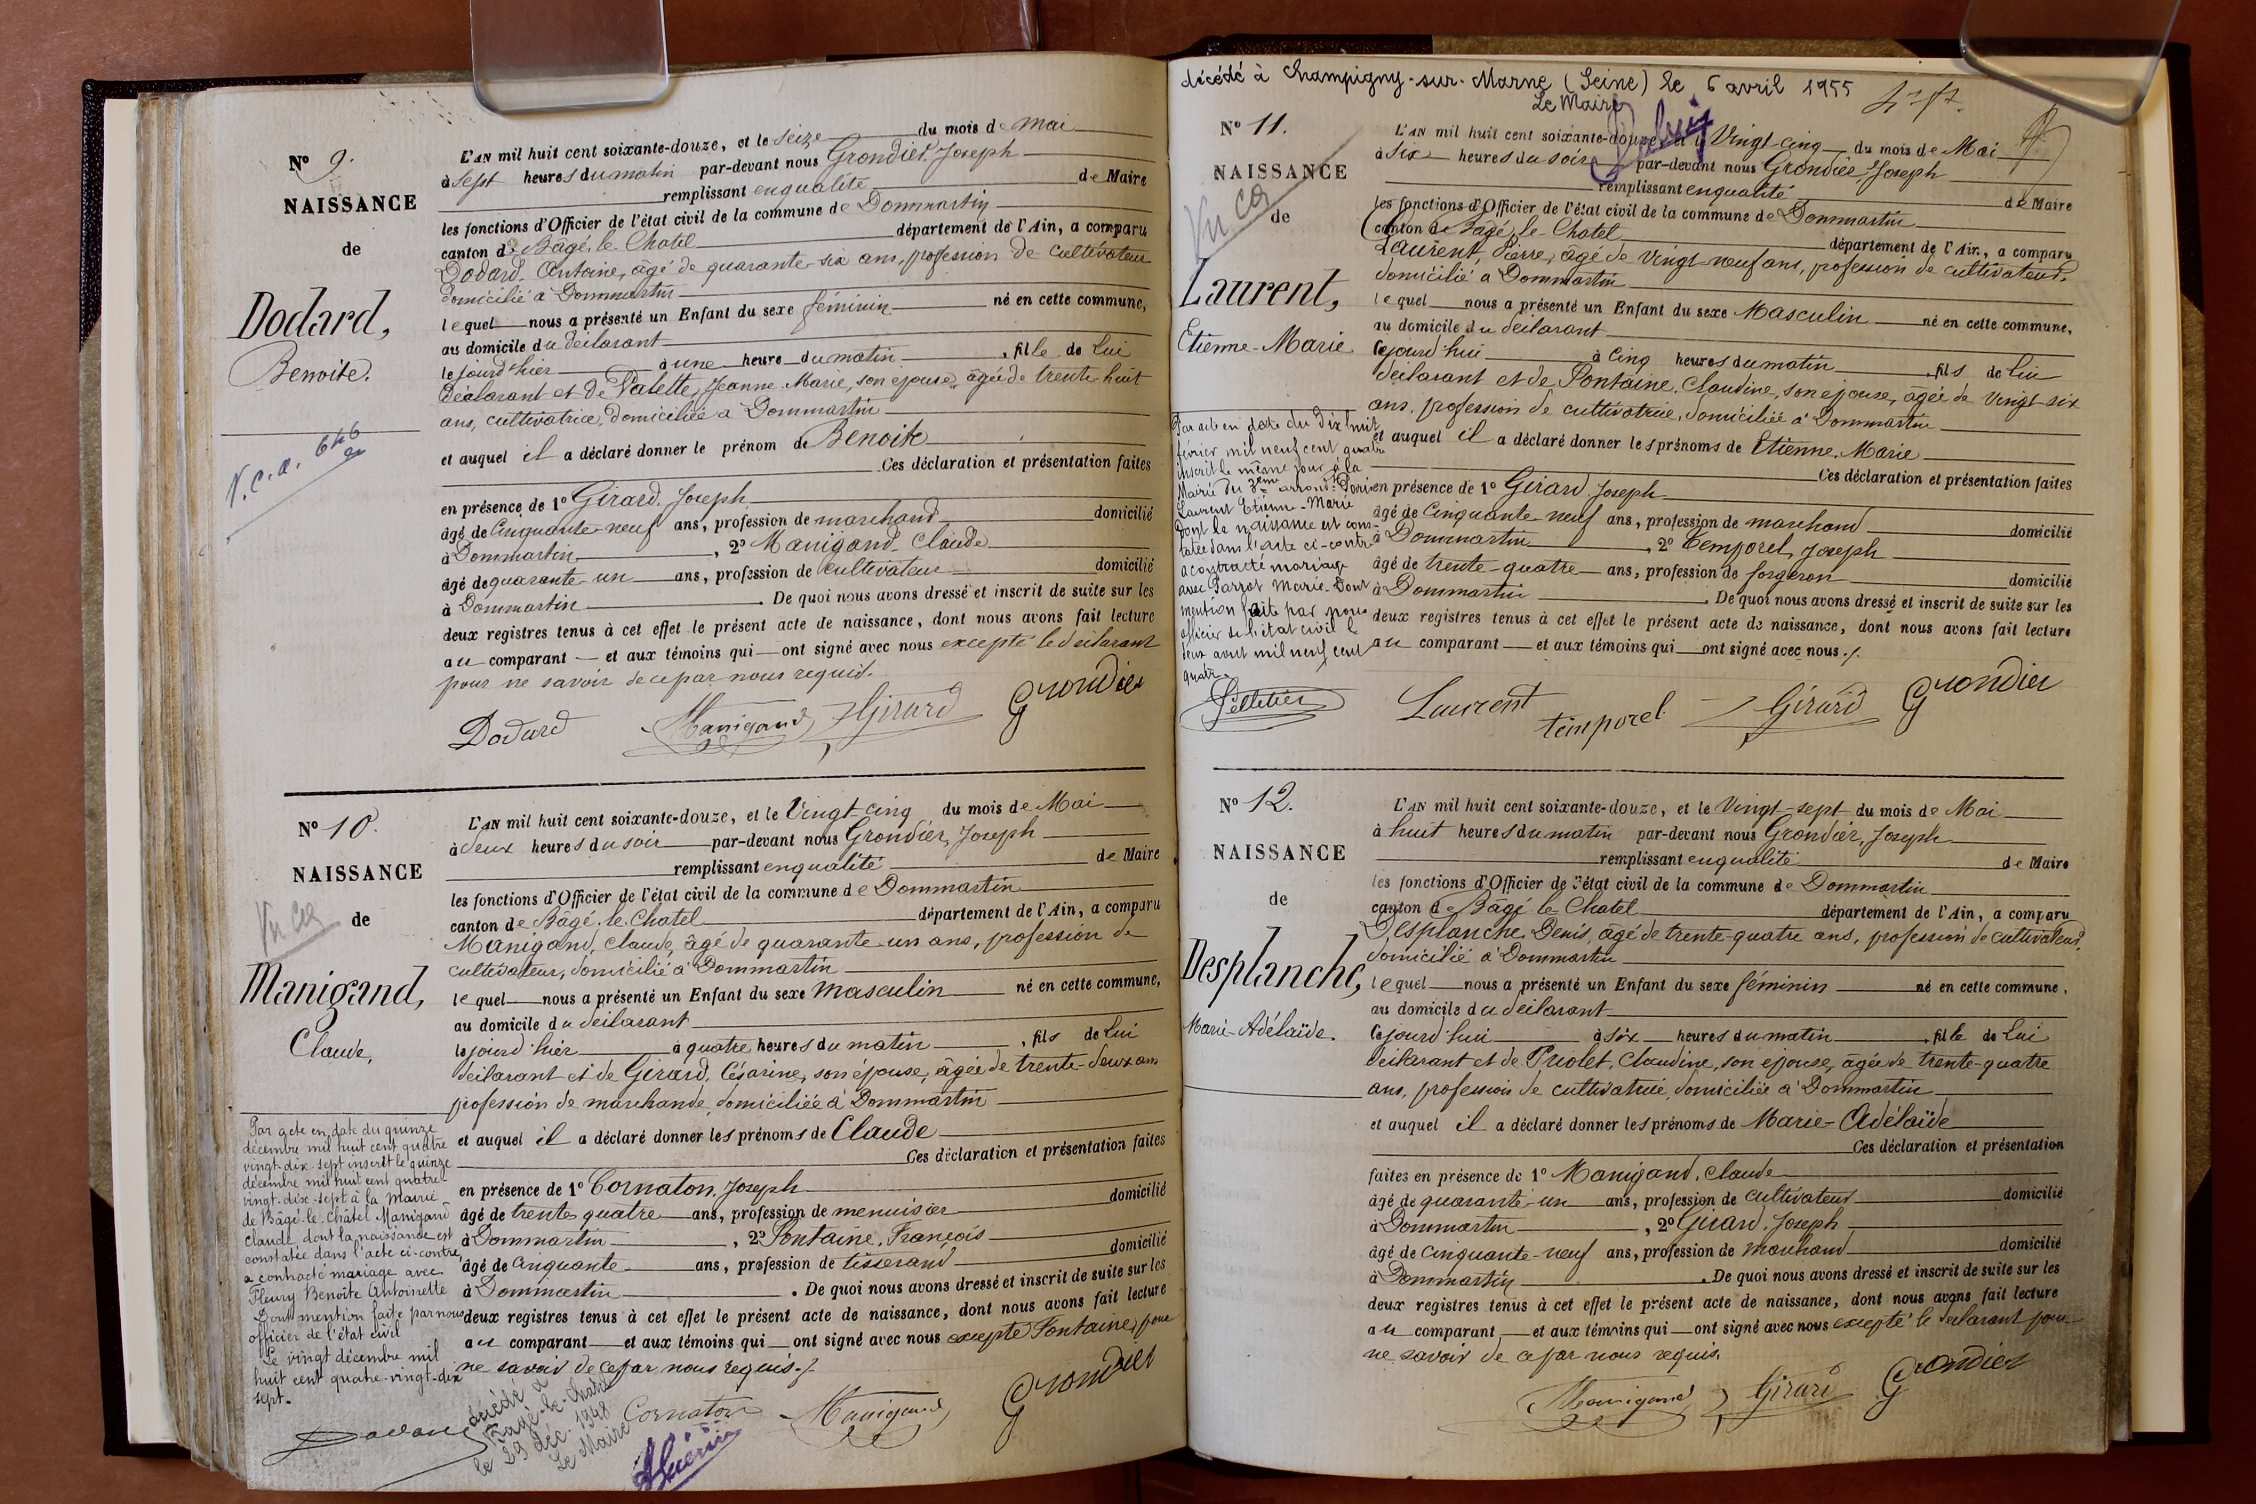 N° 9.
NAISSANCE
de
Dodard,
Benoite.
N.C.A. 646
L'AN mil huit cent soixante-douze, et le seize du mois de Mai
à sept heures du matin par-devant nous Grondier, Joseph
remplissant en qualité de Maire
les fonctions d'Officier de l'état civil de la commune de Dommartin
canton de Bâgé-le-Chatel département de l'Ain, a comparu
Dodard, Antoine, âgé de quarante-six ans, profession de cultivateur
domicilié à Dommartin
lequel nous a présenté un Enfant du sexe féminin né en cette commune,
au domicile du déclarant
le jour d'hier à une heure du matin, fille de Lui
déclarant et de Valette, Jeanne Marie, son épouse, âgée de trente huit
ans, cultivatrice, domiciliée à Dommartin
et auquel il a déclaré donner le prénom de Benoite
Ces déclaration et présentation faites
en présence de 1° Girard, Joseph
âgé de Cinquante-neuf ans, profession de marchand domicilié
à Dommartin, 2° Manigand, Claude
âgé de quarante-un ans, profession de cultivateur domicilié
à Dommartin. De quoi nous avons dressé et inscrit de suite sur les
deux registres tenus à cet effet le présent acte de naissance, dont nous avons fait lecture
au comparant et aux témoins qui ont signé avec nous excepté le déclarant
pour ne savoir de ce par nous requis.
Dodard Manigand Girard Grondier
N° 10.
NAISSANCE
Vu ca
de
Manigand,
Claude,
Par acte en date du quinze
décembre mil huit cent quatre
vingt-dix-sept inscrit le quinze
décembre mil huit cent quatre-
vingt-dix-sept à la Mairie
de Bâgé-le-Châtel Manigand
Claude, dont la naissance est
constatée dans l'acte ci-contre,
a contracté mariage avec
Fleury Benoîte Antoinette
Dont mention faite par nous
officier de l'état civil
Le vingt décembre mil
huit cent quatre-vingt-dix
sept.
L'AN mil huit cent soixante-douze, et le Vingt-cinq du mois de Mai
à deux heures du soir par-devant nous Grondier, Joseph
remplissant en qualité de Maire
les fonctions d'Officier de l'état civil de la commune de Dommartin
canton de Bâgé-le-Chatel département de l'Ain, a comparu
Manigand, Claude, âgé de quarante-un ans, profession de
cultivateur, domicilié à Dommartin
lequel nous a présenté un Enfant du sexe masculin né en cette commune,
au domicile du déclarant
le jour d'hier à quatre heures du matin, fils de Lui
déclarant et de Girard, Césarine, son épouse, âgée de trente-deux ans
profession de marchande, domiciliée à Dommartin
et auquel il a déclaré donner les prénoms de Claude
Ces déclaration et présentation faites
en présence de 1° Cornaton, Joseph
âgé de trente quatre ans, profession de menuisier domicilié
à Dommartin, 2° Fontaine, François
âgé de cinquante ans, profession de tisserand domicilié
à Dommartin. De quoi nous avons dressé et inscrit de suite sur les
deux registres tenus à cet effet le présent acte de naissance, dont nous avons fait lecture
au comparant et aux témoins qui ont signé avec nous excepté Fontaine, pour
ne savoir de ce par nous requis./.
décédé à
Bagé-le-Chatel
le 29 déc. 1948
Le Maire
Cornaton Manigand Grondier
décédé à Champigny-sur-Marne (Seine) le 6 avril 1955
Le Maire
N° 11.
NAISSANCE
Vu ca
de
Laurent,
Etienne-Marie
Par acte en date du dix huit
février mil neuf cent quatre
inscrit le même jour à la
Mairie du 3eme arrondt Paris
Laurent Etienne-Marie
dont la naissance est cons-
tatée dans l'acte ci-contre
a contracté mariage
avec Parrot Marie. Dont
mention faite par nous
officier de l'état civil le
deux avril mil neuf cent
quatre.
Pelletier
L'AN mil huit cent soixante-douze, et le Vingt-cinq du mois de Mai
à six heures du soir par-devant nous Grondier, Joseph
remplissant en qualité de Maire
les fonctions d'Officier de l'état civil de la commune de Dommartin
canton de Bâgé-le-Chatel département de l'Ain, a comparu
Laurent, Pierre, âgé de vingt-neuf ans, profession de cultivateur,
domicilié à Dommartin
lequel nous a présenté un Enfant du sexe Masculin né en cette commune,
au domicile du déclarant
ce jourd'hui à cinq heures du matin, fils de Lui
déclarant et de Fontaine, Claudine, son épouse, âgée de vingt-six
ans, profession de cultivatrice, domiciliée à Dommartin
et auquel il a déclaré donner les prénoms de Etienne-Marie
Ces déclaration et présentation faites
en présence de 1° Girard Joseph
âgé de Cinquante-neuf ans, profession de marchand domicilié
à Dommartin, 2° Temporel, Joseph
âgé de trente-quatre ans, profession de forgeron domicilié
à Dommartin. De quoi nous avons dressé et inscrit de suite sur les
deux registres tenus à cet effet le présent acte de naissance, dont nous avons fait lecture
au comparant et aux témoins qui ont signé avec nous./.
Laurent temporel Girard Grondier
N° 12.
NAISSANCE
de
Desplanche,
Marie-Adélaïde.
L'AN mil huit cent soixante-douze, et le Vingt-sept du mois de Mai
à huit heures du matin par-devant nous Grondier, Joseph
remplissant en qualité de Maire
les fonctions d'Officier de l'état civil de la commune de Dommartin
canton de Bâgé le Chatel département de l'Ain, a comparu
Desplanche, Denis, âgé de trente-quatre ans, profession de cultivateur,
domicilié à Dommartin
lequel nous a présenté un Enfant du sexe féminin né en cette commune,
au domicile du déclarant
ce jourd'hui à six heures du matin, fille de Lui
déclarant et de Puolet, Claudine, son épouse, âgée de trente-quatre
ans, profession de cultivatrice, domiciliée à Dommartin
et auquel il a déclaré donner les prénoms de Marie-Adélaïde
Ces déclaration et présentation
faites en présence de 1° Manigand, Claude
âgé de quarante-un ans, profession de cultivateur domicilié
à Dommartin, 2° Girard, Joseph
âgé de Cinquante-neuf ans, profession de marchand domicilié
à Dommartin. De quoi nous avons dressé et inscrit de suite sur les
deux registres tenus à cet effet le présent acte de naissance, dont nous avons fait lecture
au comparant et aux témoins qui ont signé avec nous excepté le déclarant pour
ne savoir de ce par nous requis.
Manigand Girard Grondier